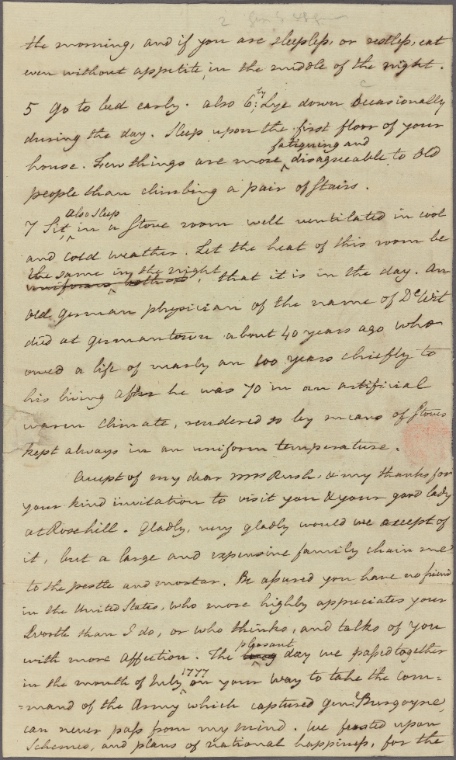 the morning, and if you are sleepless, or restless, eat
even without appetite, in the middle of the night.
5 Go to bed early. also 6:ly Lye down occasionally
during the day. Sleep upon the first floor of your
fatiguing and
house. Few things are more ^ disagreeable to old
people than climbing a pair of stairs.
also sleep
7 Sit ^ in a Stove room well ventilated in cool
and cold weather. Let the heat of this room be
the same in the night
uniform , that it is in the day. An
old German physician of the name of De Wit
died at Germantown about 40 years ago who
owed a life of nearly an 100 years chiefly to
his living after he was 70 in an artificial
warm climate, rendered so by means of Stoves
kept always in an uniform temperature.
Accept of my dear Mrs Rush's & my thanks for
your kind invitation to visit you & your good lady
at Rosehill. Gladly, very gladly would we accept of
it, but a large and expensive family chain me
to the pestle and mortar. Be assured you have no friend
in the United States, who more highly appreciates your
Worth than I do, or who thinks, and talks of you
pleasant
with more affection. The long day we passed together
1777
in the month of July ^ on your way to take the com=
=mand of the Army which captured Genl Burgoyne,
can never pass from my mind. We feasted upon
Schemes, and plans of national happiness, for the